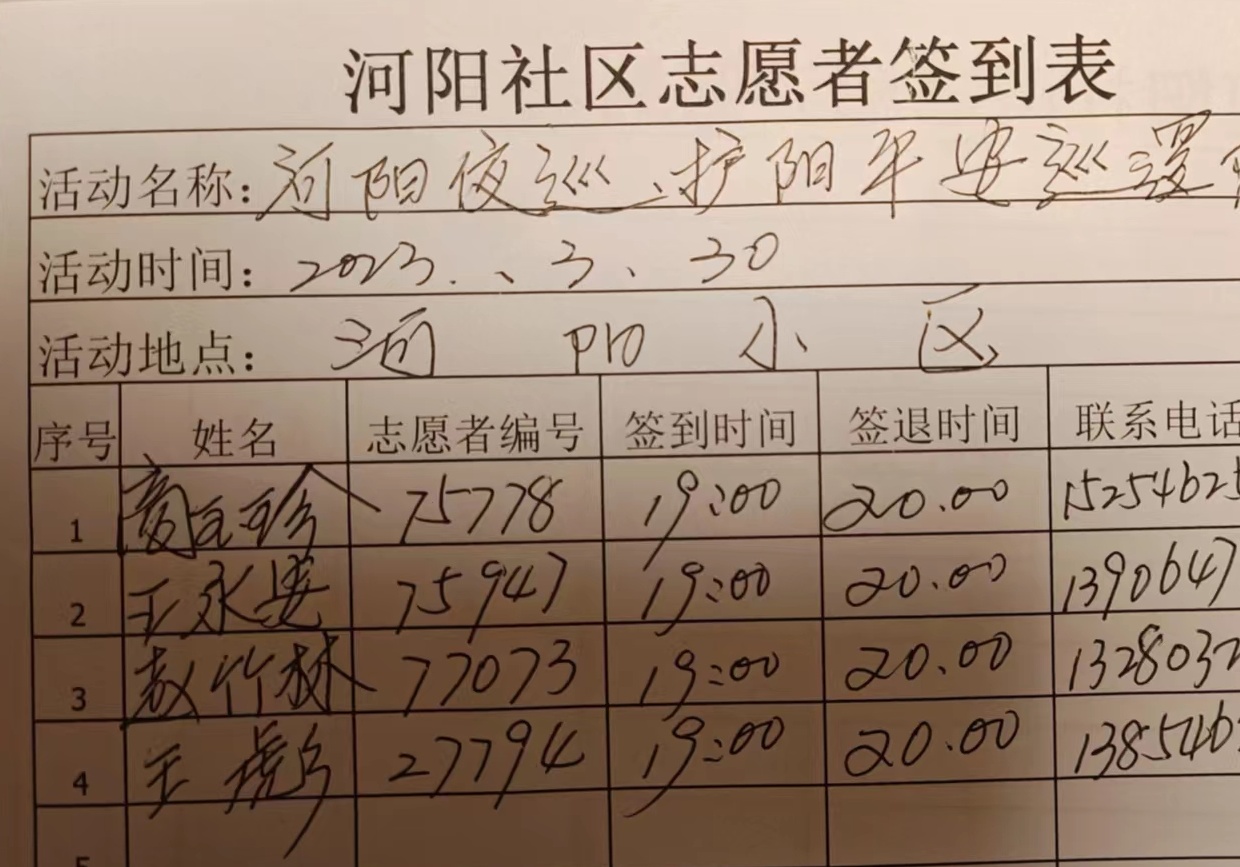 河阳社区志愿者签到表
活动名称: 河阳夜巡、护阳平安巡逻
活动时间: 2023.、3、30
活动地点: 河阳小区
序号 姓名 志愿者编号 签到时间 签退时间 联系电话
1 75778 19:00 20.00 1525462
2 王永 75947 19:00 20.00 1390647
3 赵竹林 77073 19:00 20.00 1328032
4 王 27794 19:00 20.00 138546
5